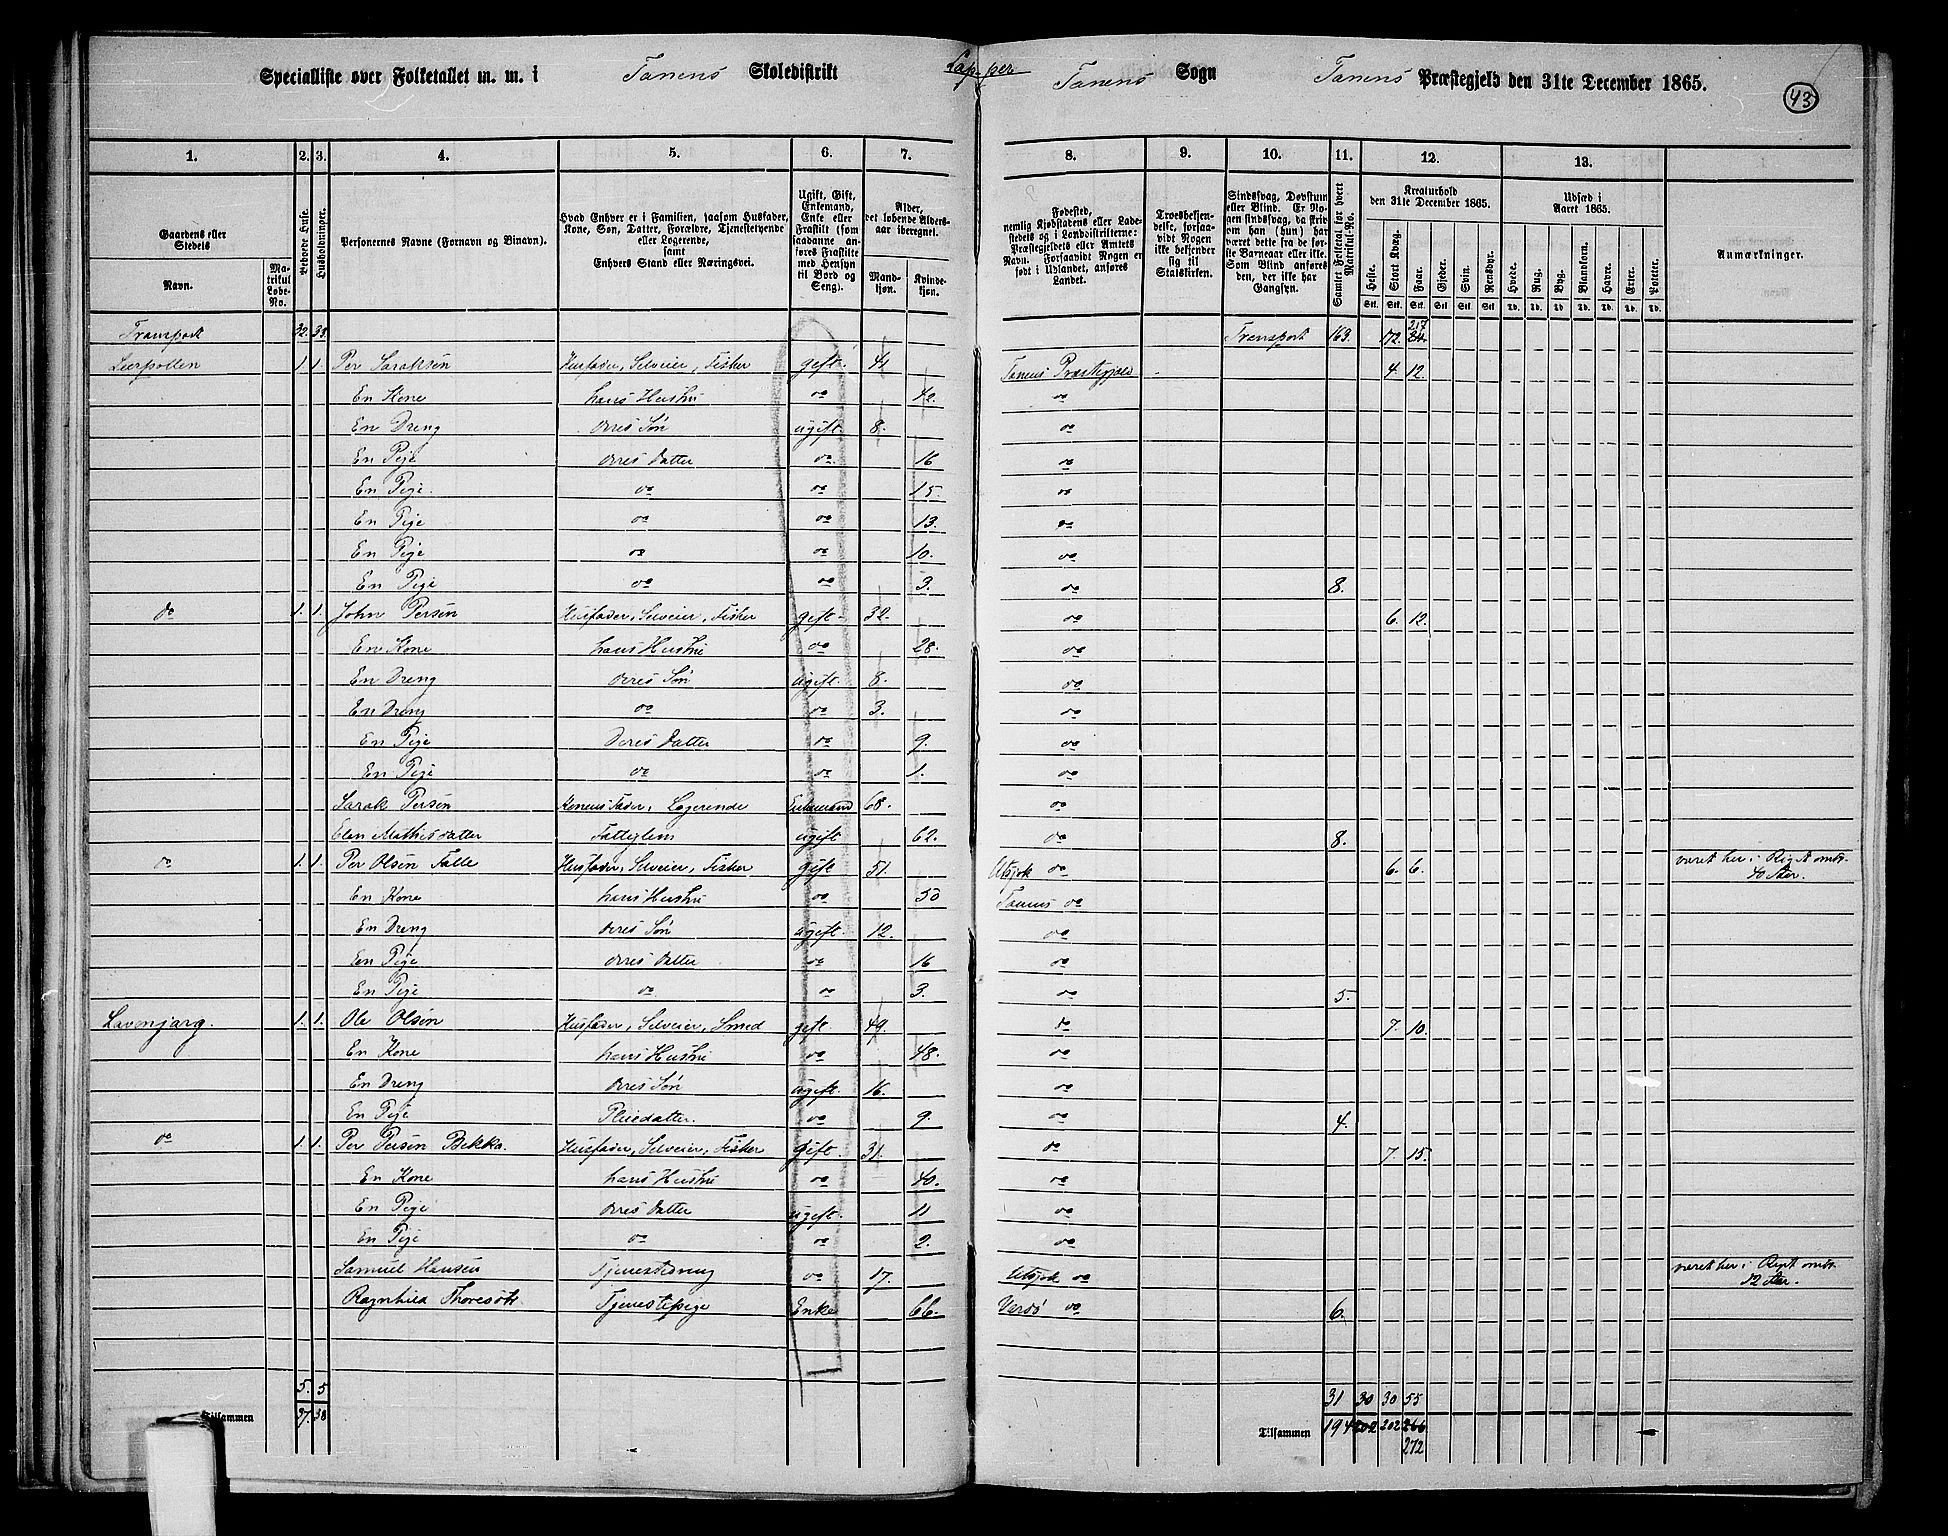 Specialliste over Folketallet m. m. i Tanens Skoledistrikt Lapper Tanens Sogn Tanens Præstegjeld den 31te December 1865. 43
1. 2. 3. 4. 5. 6. 7. 8. 9. 10. 11. 12. 13.
Gaardens eller Stedets
Navn.
Matrikul Løbe-No.
Beboede Huse.
Husholdninger.
Personernes Navne (Fornavn og Binavn).
Hvad Enhver er i Familien, saasom Husfader, Kone, Søn, Datter, Forældre, Tjenestetyende eller Logerende, samt Enhvers Stand eller Næringsvei.
Ugift, Gift, Enkemand, Enke eller Fraskilt (som saadanne anføres Fraskilte med Hensyn til Bord og Seng).
Alder, det løbende Alders-aar iberegnet.
Mandkjøn. Kvindekjøn.
Fødested, nemlig Kjøbstadens eller Ladestedets og i Landdistrikterne: Præstegjeldets eller Amtets Navn. Forsaavidt Nogen er født i Udlandet, anføres Landet.
Troesbekjendelse, forsaavidt Nogen ikke bekjender sig til Statskirken.
Sindssvag, Døvstum eller Blind. Er Nogen sindssvag, da skrives om han (hun) har været dette fra de første Barneaar eller ikke. Som Blind anføres den, der ikke har Gangsyn.
Samlet Folketal for hvert Matrikul-No.
Kreaturhold den 31te December 1865.
Heste. Stort Kvæg. Faar. Gjeder. Svin. Rensdyr.
Udsæd i Aaret 1865.
Hvede. Rug. Byg. Blandkorn. Havre. Erter. Poteter.
Anmærkninger.
Transport 32. 33. Transport 163. 172. 217
Leerpollen 1. 1. Per Saraksen Husfader, Selveier, Fisker gift 44 Tanens Præstegjeld 4 12.
En Kone hans Hustru do 42. do
En Dreng deres Søn ugift 8. do
En Pige deres Datter do 16 do
En Pige do do 15. do
En Pige do do 13. do
En Pige do do 10. do
En Pige do do 3. do 8.
do 1. 1. John Persen Husfader, Selveier, Fisker gift 32. do 6. 12.
En Kone hans Hustru do 28. do
En Dreng deres Søn ugift. 8. do
En Dreng do do 3. do
En Pige Deres Datter do 9. do
En Pige do do 1. do
Sarak Persen Konens Fader, Logerende Enkemand 68. do
Elen Mathisdatter Fattiglem ugift 62. do 8.
do 1. 1. Per Olsen Falle Husfader, Selveier, Fisker gift 51. Utsjok do 6. 6. været her i Riget omtr. 40 Aar.
En Kone hans Hustru do 50 Tanens do
En Dreng deres Søn ugift. 12. do
En Pige deres Datter do 16 do
En Pige do do 3. do 5.
Lavonjarg. 1. 1. Ole Olsen Husfader, Selveier, Smed gift 49. do 7. 10.
En Kone hans Hustru do 48. do
En Dreng deres Søn ugift. 16. do
En Pige Pleiedatter. do 9. do 4.
do 1. 1. Per Persen Bekka. Husfader, Selveier, Fisker gift. 31. do 7. 15.
En Kone hans Hustru do 40. do
En Pige deres Datter ugift. 11 do
En Pige do do 2. do
Samuel Hansen Tjenestedreng do 17. Utsjok do været her i Riget omtr. 12 Aar.
Ragnhild Thoresdtr. Tjenestepige Enke 66. Vardø do 6.
5. 5 31 30 30 55
Tilsammen 37. 38 Tilsammen 194 202 202 266
272